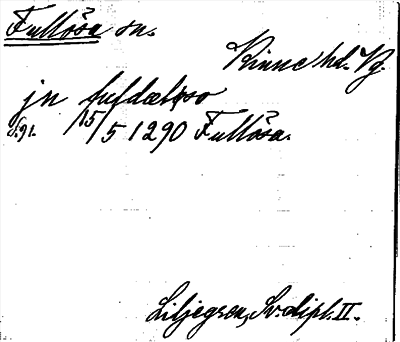 Fullösa sn.
Kinne hd. Vg.
jn fufdæløso
S. 91. 15/5 1290 Fullösa.
Liljegren, Sv. dipl. II.